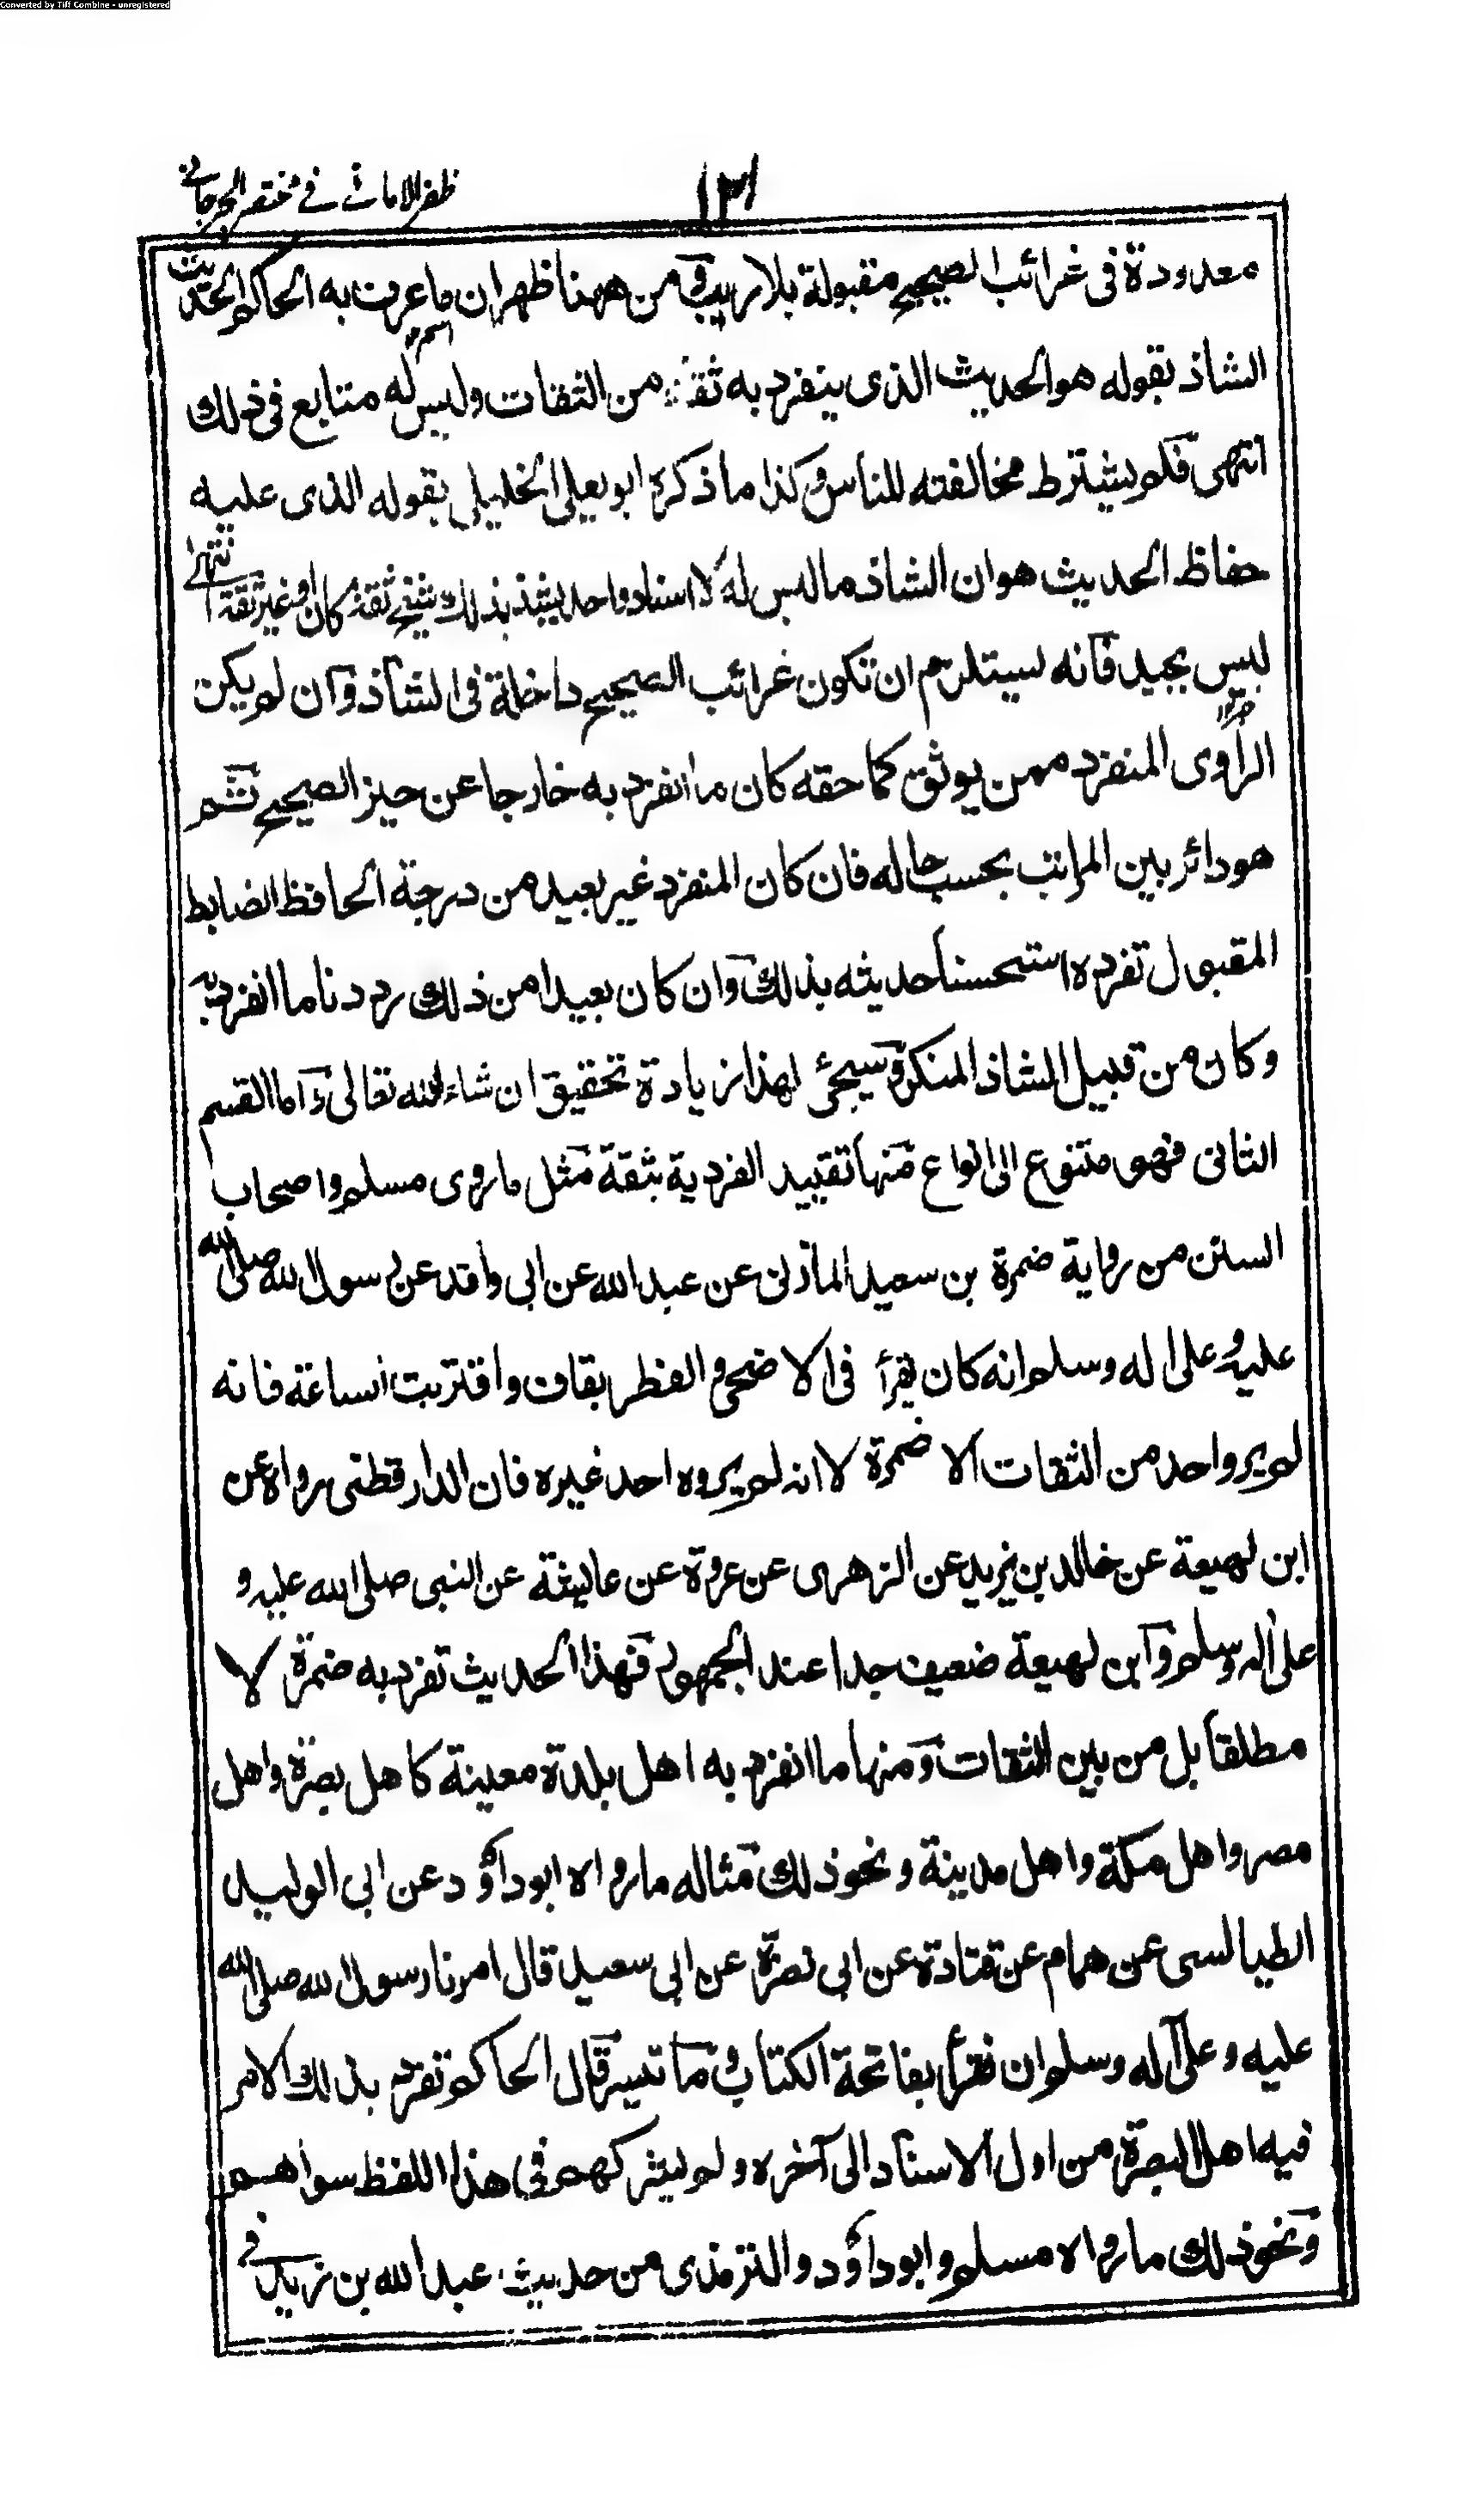 Converted by Tiff Combine - unregistered
١٣١
ظفر الامانی فی مختصر الجرجانی
معدودة فی غرائب الصحیح مقبولة بلا ریب ومن ههنا ظهر ان ما عرف به الحاکم الحدیث
الشاذ بقوله هو الحدیث الذی ینفرد به ثقة من الثقات ولیس له متابع فی ذلك
انتهی فلم یشترط مخالفته للناس وکذا ما ذکره ابو یعلی الخلیلی بقوله الذی علیه
حفاظ الحدیث هو ان الشاذ ما لیس له الا اسناد واحد یشذ بذلك شیخ ثقة کان او غیر ثقة انتهی
لیس بجید فانه یستلزم ان تکون غرائب الصحیح داخلة فی الشاذ وان لم یکن
الراوی المنفرد ممن یوثق کما حقه کان ما انفرد به خارجا عن حیز الصحیح ثم
هو دائر بین المراتب بحسب حاله فان کان المنفرد غیر بعید من درجة الحافظ الضابط
المقبول تفرده استحسنا حدیثه بذلك وان کان بعیدا من ذلك رددنا ما انفرد به
وکان من قبیل الشاذ المنکر وسیجئ لهذا زیادة تحقیق ان شاء الله تعالی واما القسم
الثانی فهو متنوع الی انواع منها تقیید الفردیة بثقة مثل ما روی مسلم واصحاب
السنن من روایة ضمرة بن سعید المازنی عن عبد الله عن ابی واقد عن رسول الله صلی الله
علیه وعلی اله وسلم انه کان یقرأ فی الاضحی والفطر بقاف واقتربت الساعة فانه
لم یرو احد من الثقات الا ضمرة لا انه لم یروه احد غیره فان الدارقطنی رواه عن
ابن لهیعة عن خالد بن یزید عن الزهری عن عروة عن عایشة عن النبی صلی الله علیه و
علی اله وسلم وابن لهیعة ضعیف جدا عند الجمهور فهذا الحدیث تفرد به ضمرة لا
مطلقا بل من بین الثقات ومنها ما انفرد به اهل بلدة معینة کاهل بصرة واهل
مصر واهل مکة واهل مدینة ونحو ذلك مثاله ما رواه ابو داؤد عن ابی الولید
الطیالسی عن همام عن قتادة عن ابی نضرة عن ابی سعید قال امرنا رسول الله صلی الله
علیه وعلی آله وسلم ان نقرأ بفاتحة الکتاب وما تیسر قال الحاکم تفرد بذلك الامر
فیه اهل البصرة من اول الاسناد الی آخره ولم یشرکهم فی هذا اللفظ سواهم
ونحو ذلك ما رواه مسلم وابو داؤد والترمذی من حدیث عبد الله بن زید فی